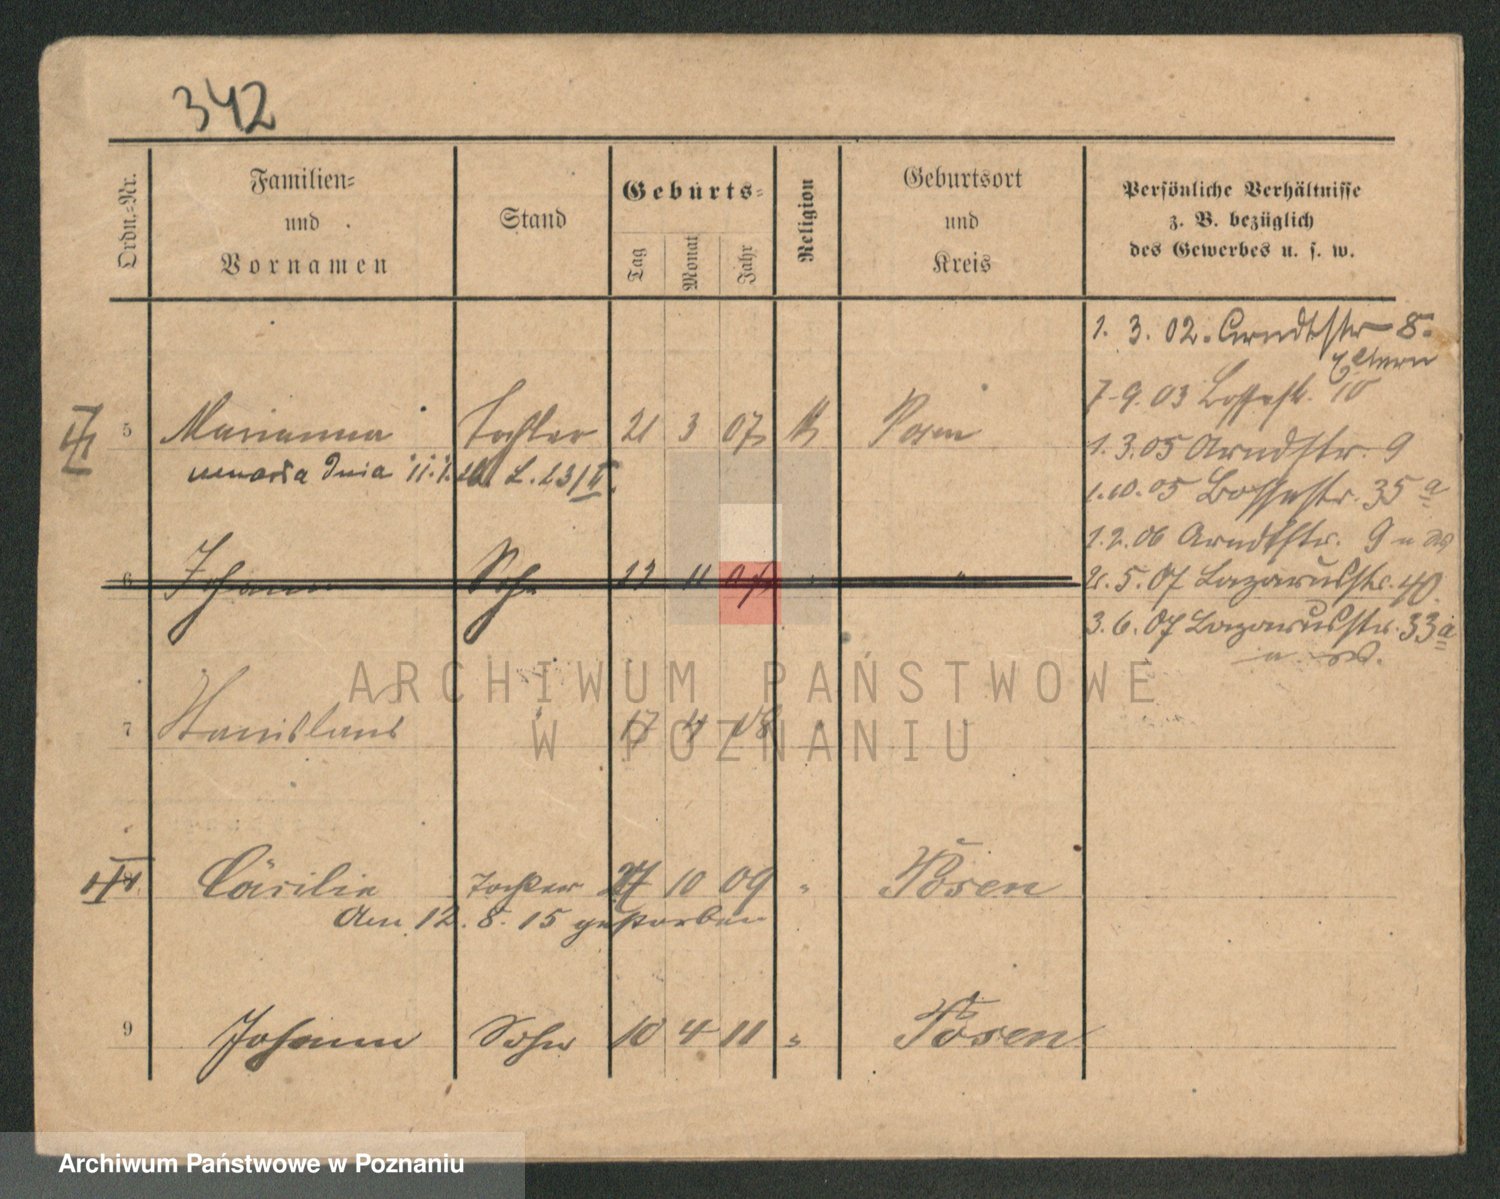 342
Ordn.-Nr.
Familien-
und
Vornamen
Stand
Geburts-
Tag
Monat
Jahr
Religion
Geburtsort
und
Kreis
Persönliche Verhältnisse
z. B. bezüglich
des Gewerbes u. s. w.
1. 3. 02. Arndtstr 8.
Eltern
7.9.03 Bossestr. 10
5 Marianna Tochter 21 3 07 k Posen
1.3.05 Arndtstr. 9
dnia 11.1. L. 23/II.
1.10.05 Bossestr. 35 a
1.2.06 Arndtstr. 9
6 Johann Sohn 11 07 "
5. 07 Lazarusstr. 40.
3.6.07 Lazarusstr. 33a
ARCHIWUM PAŃSTWOWE
W POZNANIU
7 Stanislaus 17 4 08
Cäcilie Tochter 27 10 09 " Posen
Am 12. 8. 15 gestorben
9 Johann Sohn 10 4 11 " Posen
Archiwum Państwowe w Poznaniu